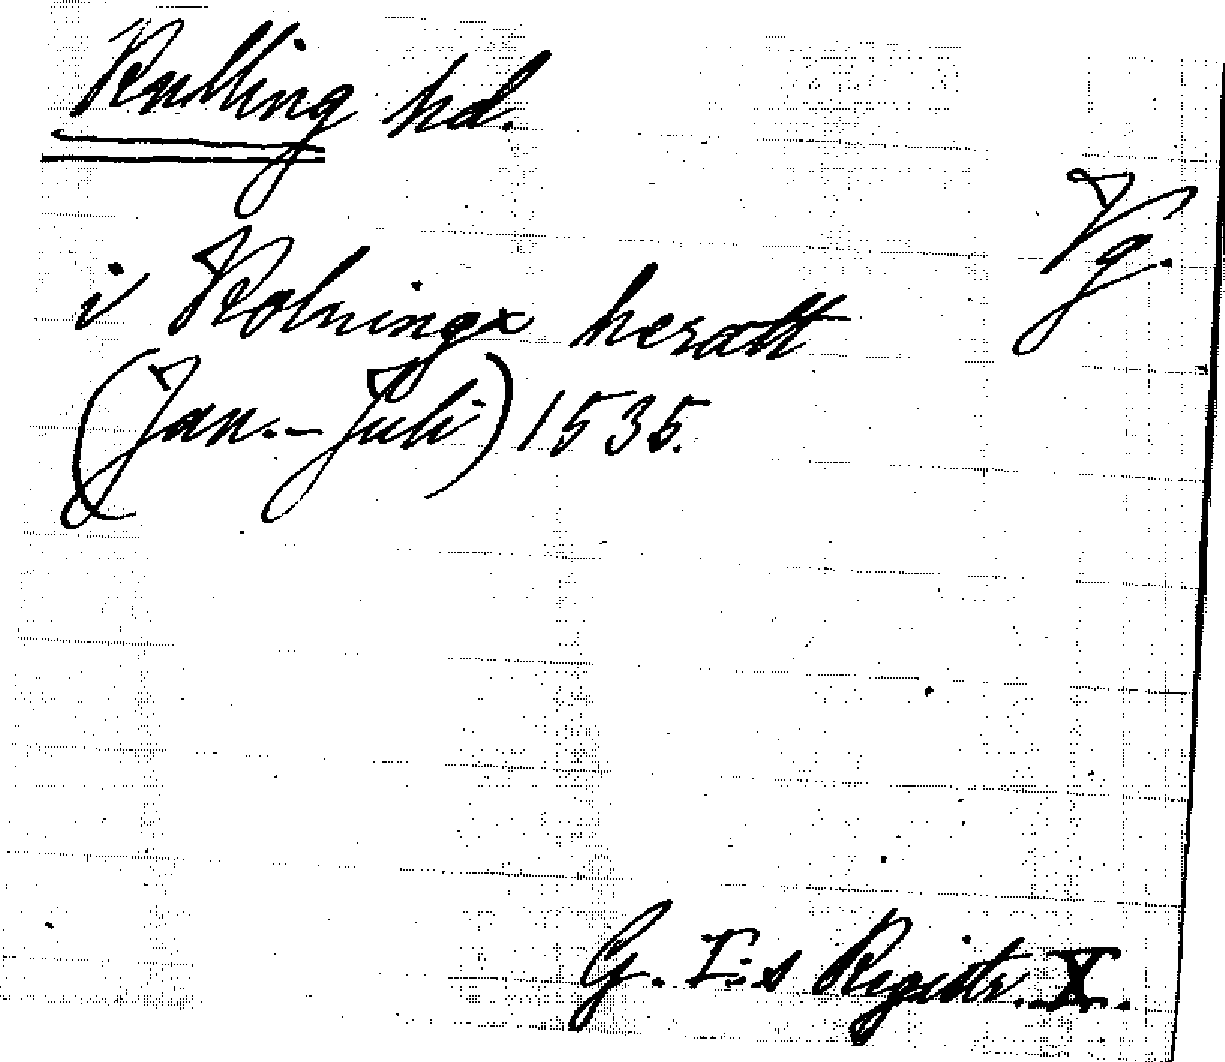 Kulling hd.
Vg.
i Kolningx heratt
(Jan. – Juli) 1535.
G. I:s Registr. X.